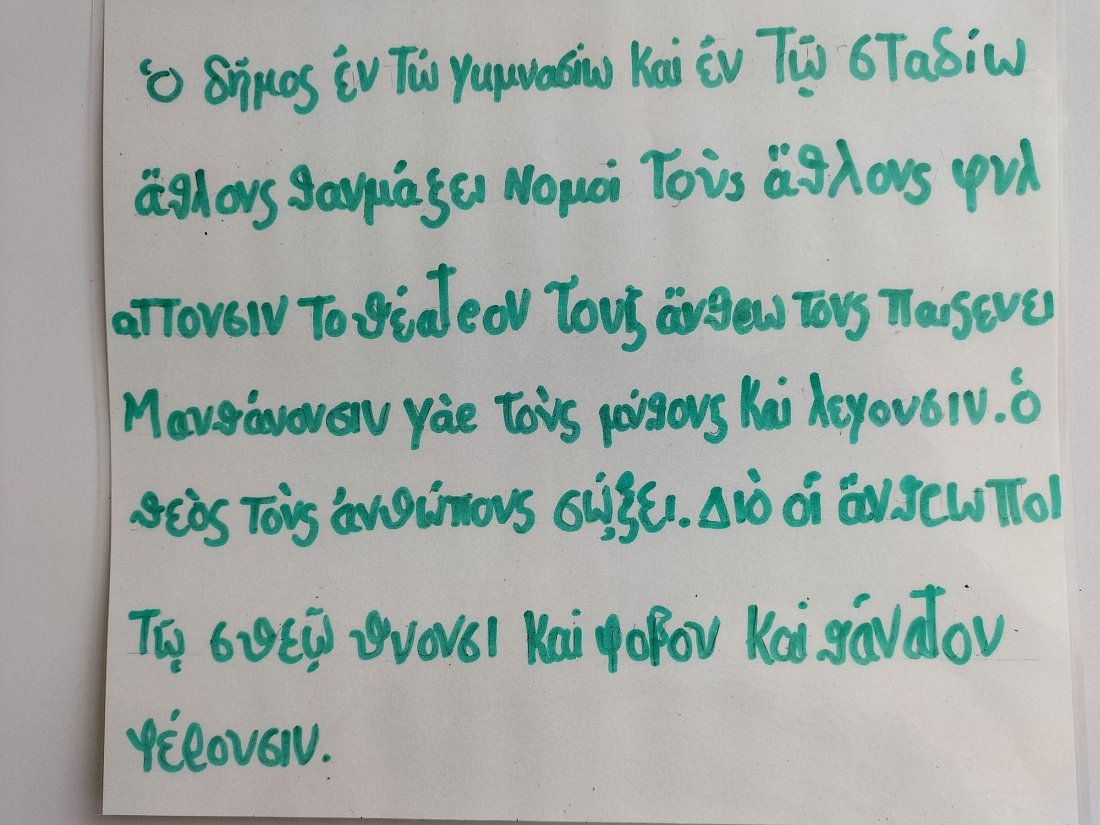 ὁ δῆμος ἐν Τῷ γυμνασίω Καὶ ἐν Τῷ σταδίω
ἄθλους θαυμάζει Νομοὶ Τοὺς ἄθλους φυλ
αττουσιν Το θέατρον Τους ἄνθρω τους παιξενει
Μανθάνουσιν γὰρ τοὺς μύθους Καὶ λεγουσιν. ὁ
θεὸς τοὺς ἀνθώπους σῴζει. Διὸ οἱ ἄνθρωποι
Τῷ σθεῷ θυουσι Καὶ φοβον Καὶ θάνατον
φέρουσιν.